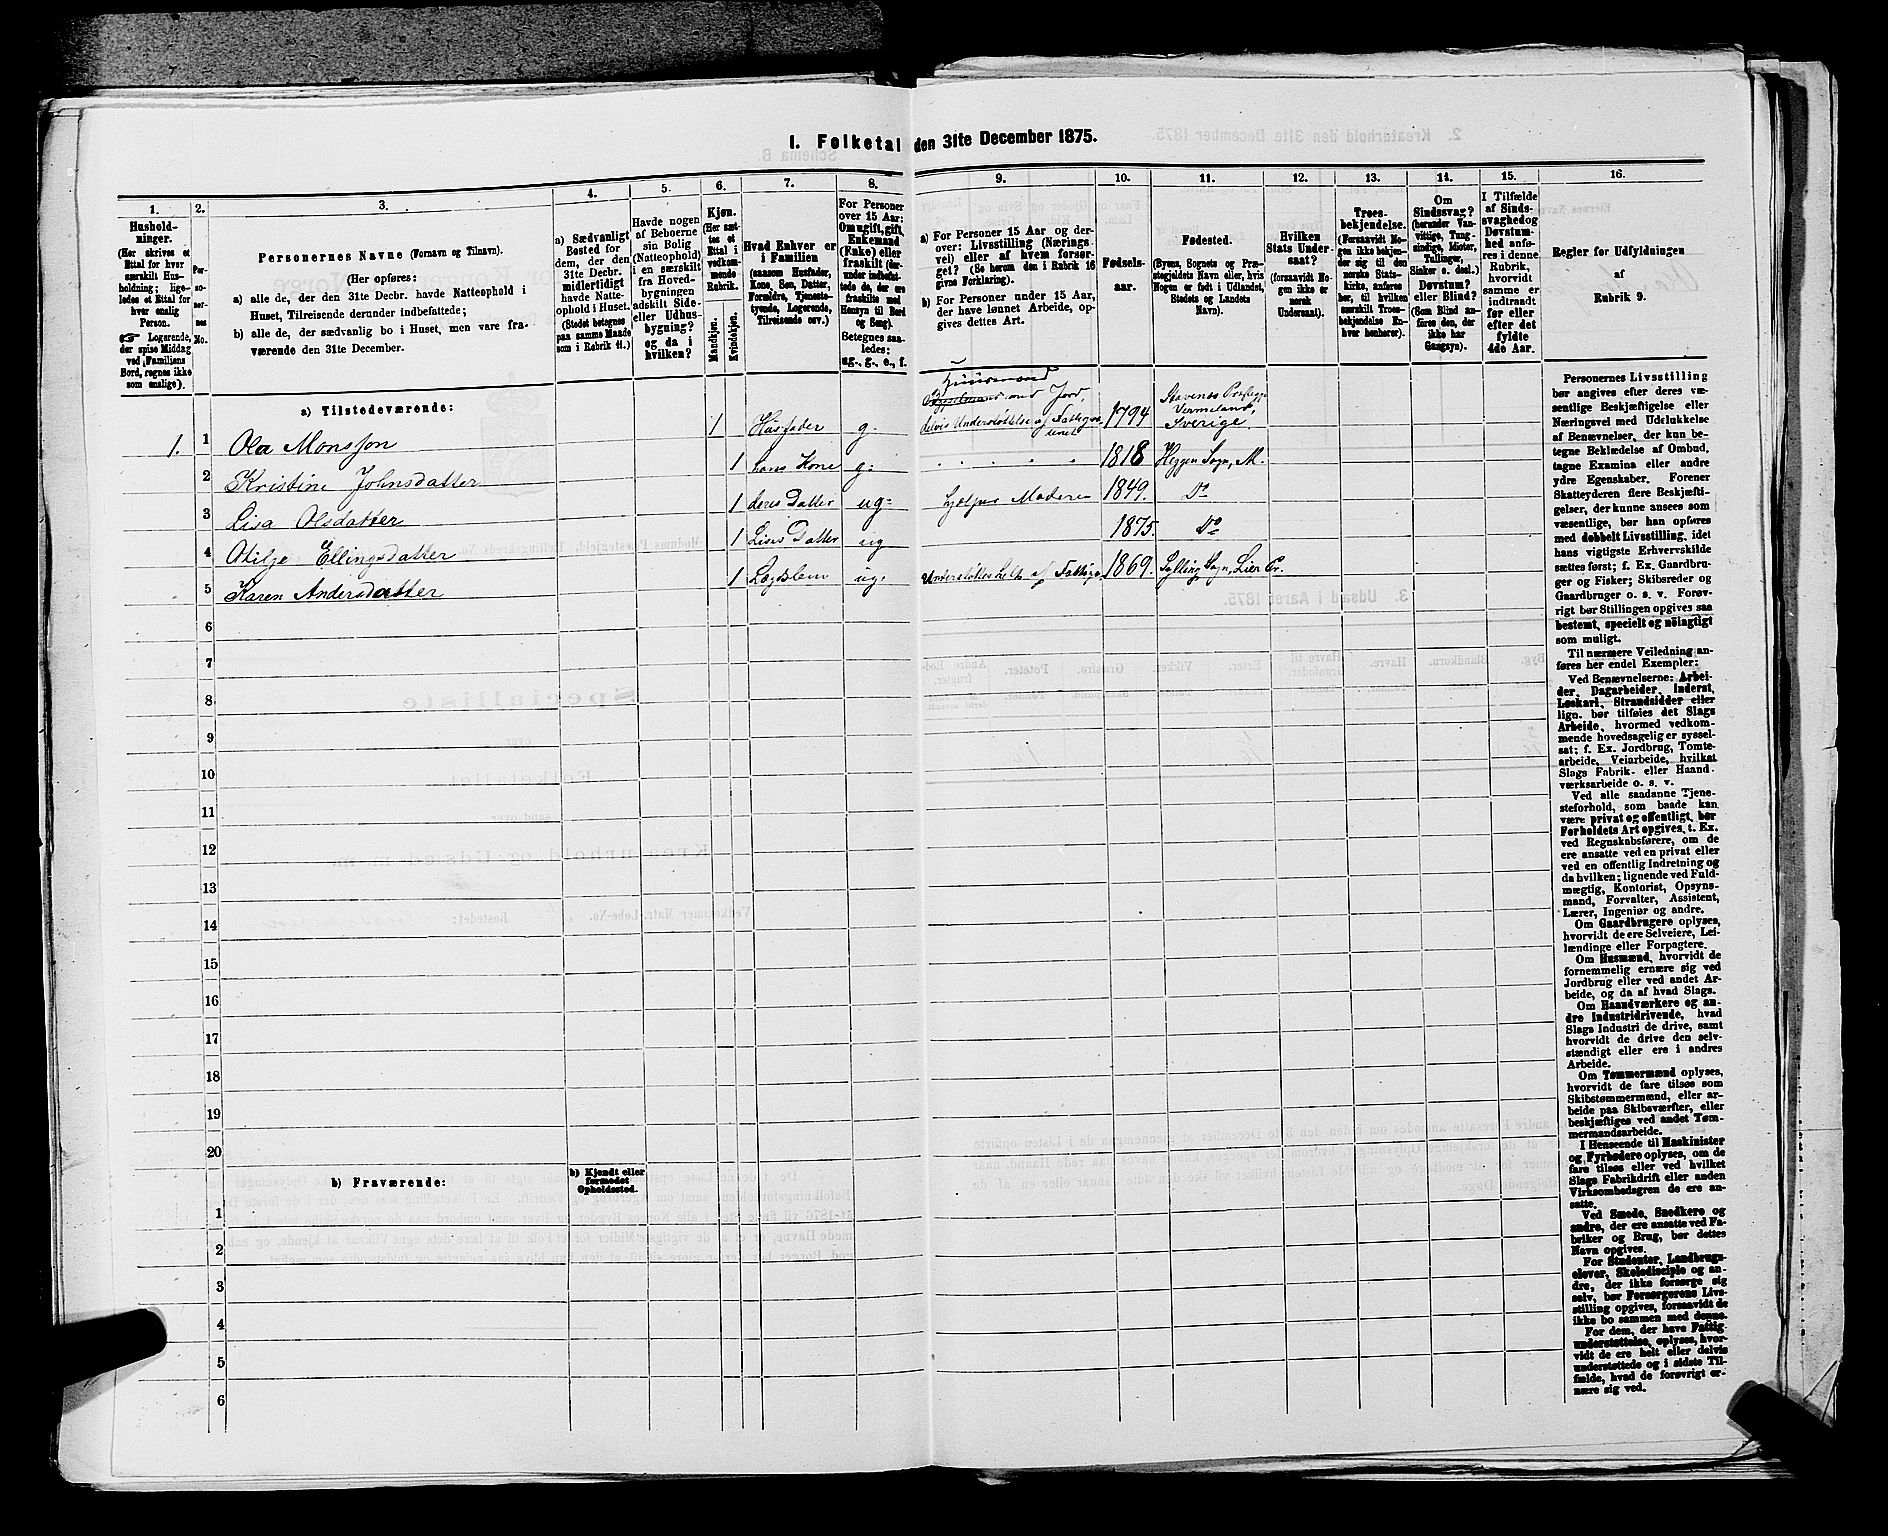 I. Folketal den 31te December 1875.
1.
Hushold-
ninger.
(Her skrives et
Ettal for hver
særskilt Hus-
holdning; lige-
ledes et Ettal for
hver enslig
Person.
☞ Logerende,
der spise Middag
ved Familiens
Bord, regnes ikke
som enslige).
2.
Per-
so-
ner-
nes
No.
3.
Personernes Navne (Fornavn og Tilnavn).
(Her opføres:
a) alle de, der den 31te Decbr. havde Natteophold i
Huset, Tilreisende derunder indbefattede;
b) alle de, der sædvanlig bo i Huset, men vare fra-
værende den 31te December.
4.
a) Sædvanligt
Bosted for
dem, der den
31te Decbr.
midlertidigt
havde Natte-
ophold i Huset.
(Stedet betegnes
paa samme Maade
som i Rubrik 11.)
5.
Havde nogen
af Beboerne
sin Bolig
(Natteophold)
i en særskilt
fra Hoved-
bygningen
adskilt Side-
eller Udhus-
bygning?
og da i
hvilken?
6.
Kjøn.
(Her sæt-
tes et
Ettal i
vedkom-
mende
Rubrik.
Mandkjøn.
Kvindekjøn.
7.
Hvad Enhver er
i Familien
(saasom Husfader,
Kone, Søn, Datter,
Forældre, Tjeneste-
tyende, Logerende,
Tilreisende osv.)
8.
For Personer
over 15 Aar:
Om ugift, gift,
Enkemand
(Enke) eller
fraskilt (der-
under indbefat-
tede de, der ere
fraskilte med
Hensyn til Bord
og Seng).
Betegnes saa-
ledes:
ug., g., e., f.
9.
a) For Personer 15 Aar og der-
over: Livsstilling (Nærings-
vei) eller af hvem forsør-
get? (Se herom den i Rubrik 16
givne Forklaring).
b) For Personer under 15 Aar,
der have lønnet Arbeide, op-
gives dettes Art.
10.
Fødsels-
aar.
11.
Fødested.
(Byens, Sognets og Præ-
stegjeldets Navn eller, hvis
Nogen er født i Udlandet,
Stedets og Landets
Navn).
12.
Hvilken
Stats Under-
saat?
(forsaavidt No-
gen ikke er
norsk
Undersaat).
13.
Troes-
bekjendelse.
(Forsaavidt No-
gen ikke bekjen-
der sig til den
norske Stats-
kirke, anføres
her, til hvilken
særskilt Troes-
bekjendelse En-
hver henhører).
14.
Om
Sindssvag?
(herunder Van-
vittige, Tung-
sindige, Idioter,
Tullinger,
Sinker o. desl.)
Døvstum?
eller Blind?
(Som Blind an-
føres den, der
ikke har
Gangsyn).
15.
I Tilfælde
af Sinds-
svaghed og
Døvstum-
hed anfø-
res i denne
Rubrik,
hvorvidt
samme er
indtraadt
før eller
efter det
fyldte
4de Aar.
16.
Regler for Udfyldningen
af
Rubrik 9.
a) Tilstedeværende:
Huusmand
1. 1 Ola Monsson 1 Husfader g. med Jord, delvis Understøttelse af 1794 Vermeland, Sverige.
2 Kristine Johnsdatter 1 hans Kone g: 1818 Heggen Sogn, M.
3 Lisa Olsdatter 1 deres Datter ug: hjælper Moderen 1849. Do
4 Ellingsdatter 1 Lises Datter ug 1875. Do
5 Karen Andersdatter 1 Lægdslem ug: Understøttes helt af 1869. Sylling Sogn, Lier Pr.
6
7
8
9
10
11
12
13
14
15
16
17
18
19
20
b) Fraværende:
b) Kjendt eller
formodet
Opholdssted.
1
2
3
4
5
6
Personernes Livsstilling
bør angives efter deres væ-
sentlige Beskjæftigelse eller
Næringsvei med Udelukkelse
af Benævnelser, der kun be-
tegne Beklædelse af Ombud,
tagne Examina eller andre
ydre Egenskaber. Forener
Skatteyderen flere Beskjæfti-
gelser, der kunne ansees som
væsentlige, bør han opføres
med dobbelt Livsstilling, idet
hans vigtigste Erhvervskilde
sættes først; f. Ex. Gaardbru-
ger og Fisker; Skibsreder og
Gaardbruger o. s. v. Forøv-
rigt bør Stillingen opgives saa
bestemt, specielt og nöiagtigt
som muligt.
Til nærmere Veiledning an-
føres her endel Exempler:
Ved Benævnelserne: Arbei-
der, Dagarbeider, Inderst,
Løskarl, Strandsidder eller
lign. bør tilføies det Slags
Arbeide, hvormed vedkom-
mende hovedsagelig er syssel-
sat; f. Ex. Jordbrug, Tomte-
arbeide, Veiarbeide, hvilket
Slags Fabrik- eller Haand-
værksarbeide o. s. v.
Ved alle saadanne Tjene-
steforhold, som baade kan
være privat og offentligt, bør
Forholdets Art opgives, t. Ex.
ved Regnskabsførere, om de
ere ansatte ved en privat eller
ved en offentlig Indretning og
da hvilken; lignende ved Fuld-
mægtig, Kontorist, Opsyns-
mand, Forvalter, Assistent,
Lærer, Ingeniør og andre.
Om Gaardbrugere oplyses,
hvorvidt de ere Selveiere, Lei-
lændinge eller Forpagtere.
Om Husmænd, hvorvidt de
fornemmelig ernære sig ved
Jordbrug eller ved andet Ar-
beide, og da af hvad Slags.
Om Haandværkere og an-
dre Industridrivende, hvad
Slags Industri de drive, samt
hvorvidt de drive den selv-
stændigt eller ere i andres
Arbeide.
Om Tømmermænd oplyses,
hvorvidt de fare tilsøs som
Skibstømmermænd, eller ar-
beide paa Skibsværfter, eller
beskjæftiges ved andet Tøm-
mermandsarbeide.
I Henseende til Maskinister
og Fyrbødere oplyses, om de
fare tilsøs eller ved hvilket
Slags Fabrikdrift eller anden
Virksomhedsgren de ere an-
satte.
Ved Smede, Snedkere og
andre, der ere ansatte ved Fa-
briker og Brug, bør dettes
Navn opgives.
For Studenter, Landbrugs-
elever, Skoledisciple og an-
dre, der ikke forsørge sig
selv, bør Forsørgerens Livs-
stilling opgives, forsaavidt de
ikke bo sammen med denne.
For dem, der have Fattig-
understøttelse, oplyses, hvor-
vidt de ere helt eller delvis
understøttede og i sidste Til-
fælde, hvad de forøvrigt er-
nære sig ved.